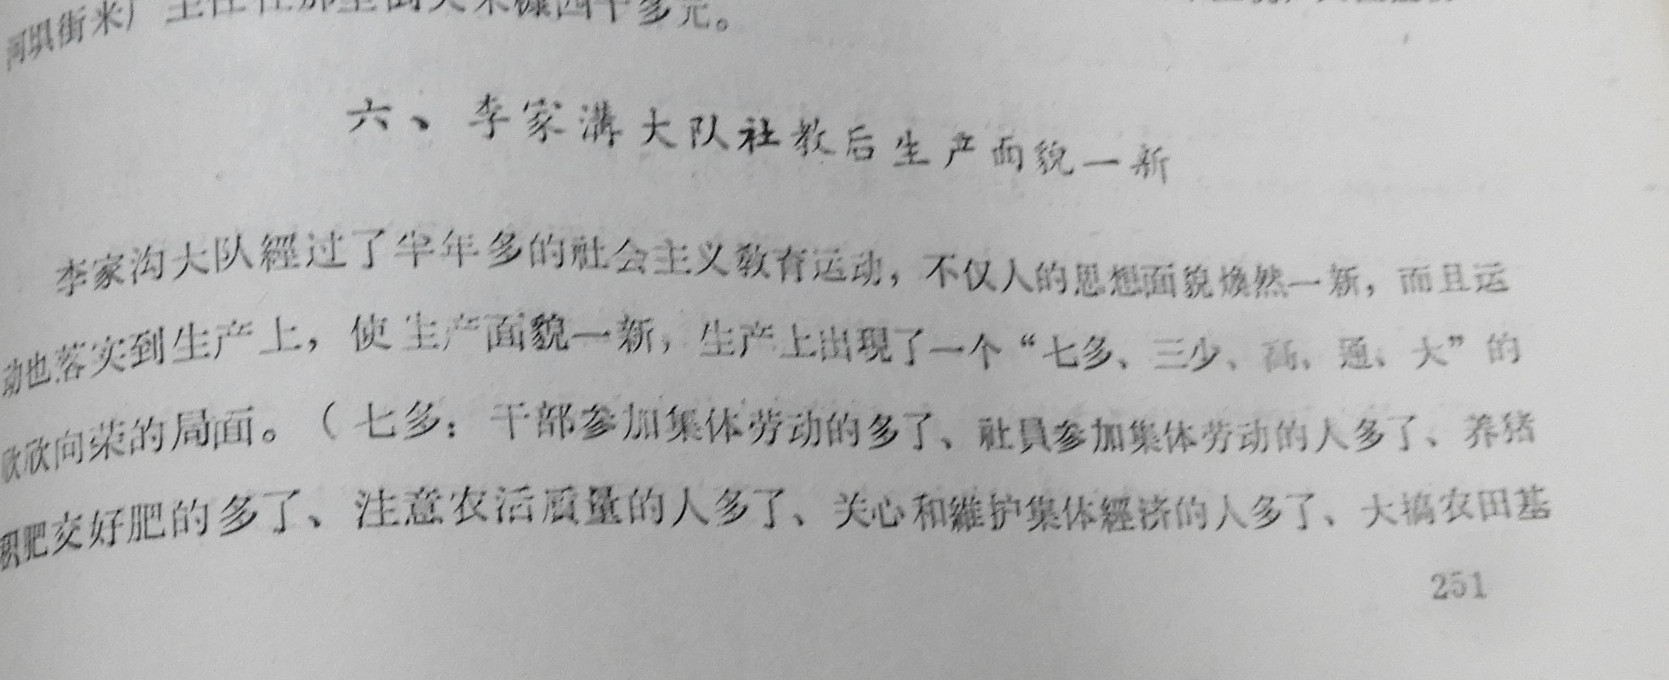 六、李家溝大队社教后生产面貌一新
李家沟大队經过了半年多的社会主义敎育运动，不仅人的思想面貌煥然一新，而且运
动也落实到生产上，使生产面貌一新，生产上出現了一个“七多、三少、高、通、大”的
欣欣向荣的局面。（七多：干部参加集体劳动的多了、社員参加集体劳动的人多了、养猪
积肥交好肥的多了、注意农活质量的人多了、关心和維护集体經济的人多了、大搞农田基
251